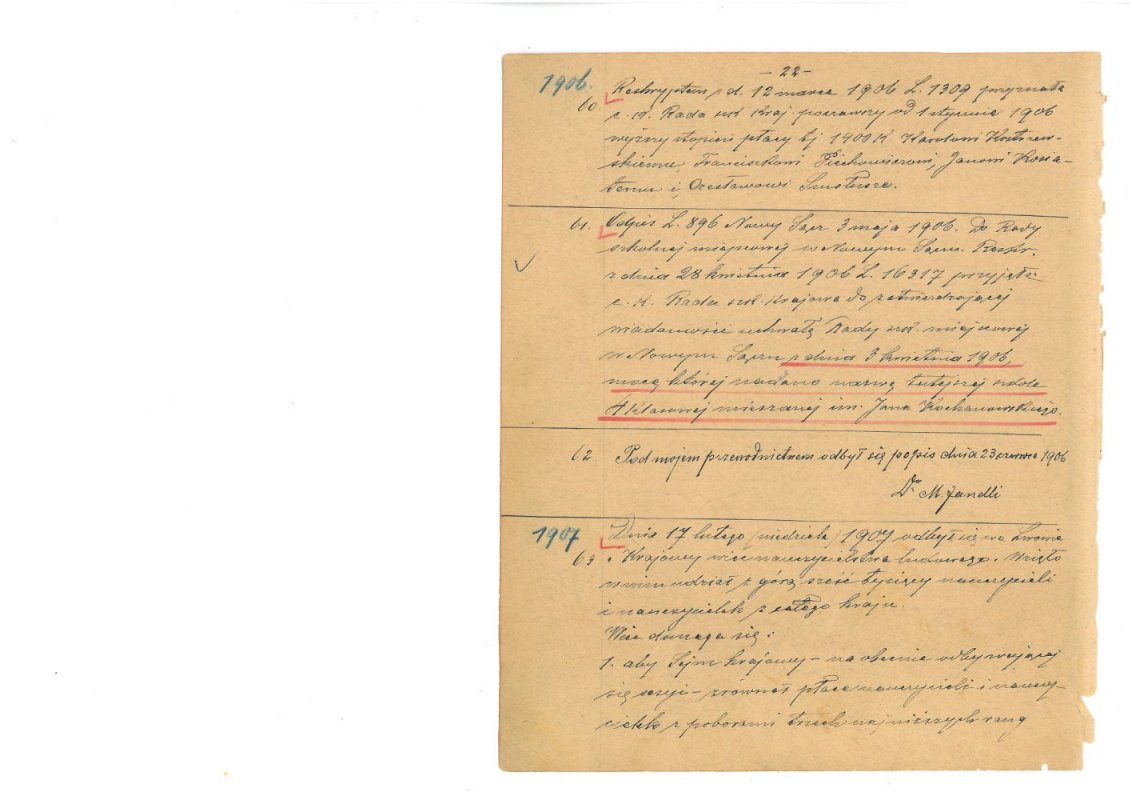 - 22 -
1906.
60. Reskryptem z d. 12 marca 1906 L. 1309 przyznała
c. k. Rada szk. Kraj. począwszy od 1 stycznia 1906
wyższy stopień płacy tj 1400 K Karolowi
skiemu, Franciszkowi Piechowiczowi, Janowi Kosia-
temu i Czesławowi
61. Odpis L. 896 Nowy Sącz 3 maja 1906. Do Rady
szkolnej miejscowej w Nowym Sączu. Reskr.
z dnia 28 kwietnia 1906 L. 16317 przyjęła
c. k. Rada szk. Krajowa do zatwierdzającej
wiadomości uchwałę Rady szk. miejscowej
w Nowym Sączu z dnia 3 kwietnia 1906,
mocą której nadano nazwę tutejszej szkole
4 klasowej mieszanej im. Jana Kochanowskiego.
62. Pod mojem przewodnictwem odbył się popis dnia 23 czerwca 1906
Dr M.
1907
Dnia 17 lutego (niedziela) 1907 odbył się we Lwowie
63. Krajowy wiec nauczycielstwa ludowego. Wzięło
w nim udział z górą sześć tysięcy nauczycieli
i nauczycielek z całego kraju.
Wiec domaga się:
1. aby Sejm krajowy – na obecnie odbywającej
się sesyi – zrównał płace nauczycieli i nauczy-
cielek z poborami trzech najniższych rang